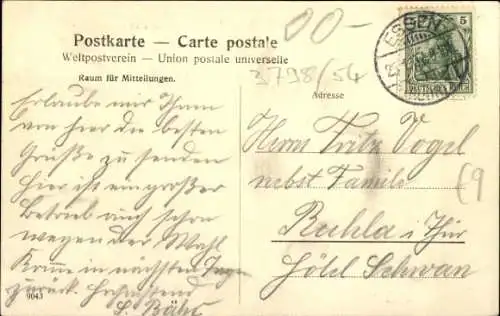 Postkarte — Carte postale
Weltpostverein — Union postale universelle
Raum für Mitteilungen.
Adresse
00-
3798/54
ESSEN
5
DEUTSCHES REICH
Erlaube mir Ihnen
von hier die besten
Grüße zu senden
Hier ist ein großer
Betrieb auch schon
wegen der Wahl
Komme in nächsten Tagen
zurück.
S. Bähr
Herrn Fritz Vogel
nebst Familie
Ruhla i/Thür
Hôtel Schwan
9043